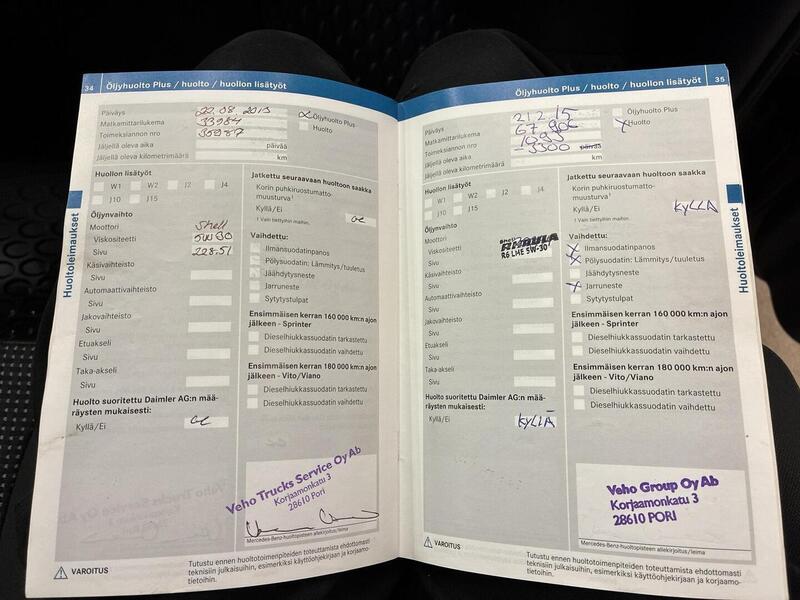 34 Öljyhuolto Plus / huolto / huollon lisätyöt
Päiväys 22.08 2013
Matkamittarilukema 33984
Toimeksiannon nro 35987
Jäljellä oleva aika päivää
Jäljellä oleva kilometrimäärä km
Öljyhuolto Plus
Huolto
Huollon lisätyöt
W1 W2 J2 J4
J10 J15
Öljynvaihto
Moottori Shell
Viskositeetti 5W30
Sivu 228.51
Käsivaihteisto
Sivu
Automaattivaihteisto
Sivu
Jakovaihteisto
Sivu
Etuakseli
Sivu
Taka-akseli
Sivu
Huolto suoritettu Daimler AG:n mää-
räysten mukaisesti:
Kyllä/Ei
Jatkettu seuraavaan huoltoon saakka
Korin puhkiruostumatto-
muusturva¹
Kyllä/Ei
¹ Vain tiettyihin maihin.
Vaihdettu:
Ilmansuodatinpanos
Pölysuodatin: Lämmitys/tuuletus
Jäähdytysneste
Jarruneste
Sytytystulpat
Ensimmäisen kerran 160 000 km:n ajon
jälkeen - Sprinter
Dieselhiukkassuodatin tarkastettu
Dieselhiukkassuodatin vaihdettu
Ensimmäisen kerran 180 000 km:n ajon
jälkeen - Vito/Viano
Dieselhiukkassuodatin tarkastettu
Dieselhiukkassuodatin vaihdettu
Veho Trucks Service Oy Ab
Korjaamonkatu 3
28610 Pori
Mercedes-Benz-huoltopisteen allekirjoitus/leima
VAROITUS
Tutustu ennen huoltotoimenpiteiden toteuttamista ehdottomasti
teknisiin julkaisuihin, esimerkiksi käyttöohjekirjaan ja korjaamo-
tietoihin.
Huoltoleimaukset
Öljyhuolto Plus / huolto / huollon lisätyöt 35
Päiväys 21.2.15
Matkamittarilukema 67.906
Toimeksiannon nro
Jäljellä oleva aika päivää
Jäljellä oleva kilometrimäärä - 3300 km
Öljyhuolto Plus
X Huolto
Huollon lisätyöt
W1 W2 J2 J4
J10 J15
Öljynvaihto
Moottori
Viskositeetti R6 LME 5W-30
Sivu
Käsivaihteisto
Sivu
Automaattivaihteisto
Sivu
Jakovaihteisto
Sivu
Etuakseli
Sivu
Taka-akseli
Sivu
Huolto suoritettu Daimler AG:n mää-
räysten mukaisesti:
Kyllä/Ei KYLLÄ
Jatkettu seuraavaan huoltoon saakka
Korin puhkiruostumatto-
muusturva¹
Kyllä/Ei KYLLÄ
¹ Vain tiettyihin maihin.
Vaihdettu:
X Ilmansuodatinpanos
X Pölysuodatin: Lämmitys/tuuletus
Jäähdytysneste
X Jarruneste
Sytytystulpat
Ensimmäisen kerran 160 000 km:n ajon
jälkeen - Sprinter
Dieselhiukkassuodatin tarkastettu
Dieselhiukkassuodatin vaihdettu
Ensimmäisen kerran 180 000 km:n ajon
jälkeen - Vito/Viano
Dieselhiukkassuodatin tarkastettu
Dieselhiukkassuodatin vaihdettu
Veho Group Oy Ab
Korjaamonkatu 3
28610 PORI
Mercedes-Benz-huoltopisteen allekirjoitus/leima
VAROITUS
Tutustu ennen huoltotoimenpiteiden toteuttamista ehdottomasti
teknisiin julkaisuihin, esimerkiksi käyttöohjekirjaan ja korjaamo-
tietoihin.
Huoltoleimaukset